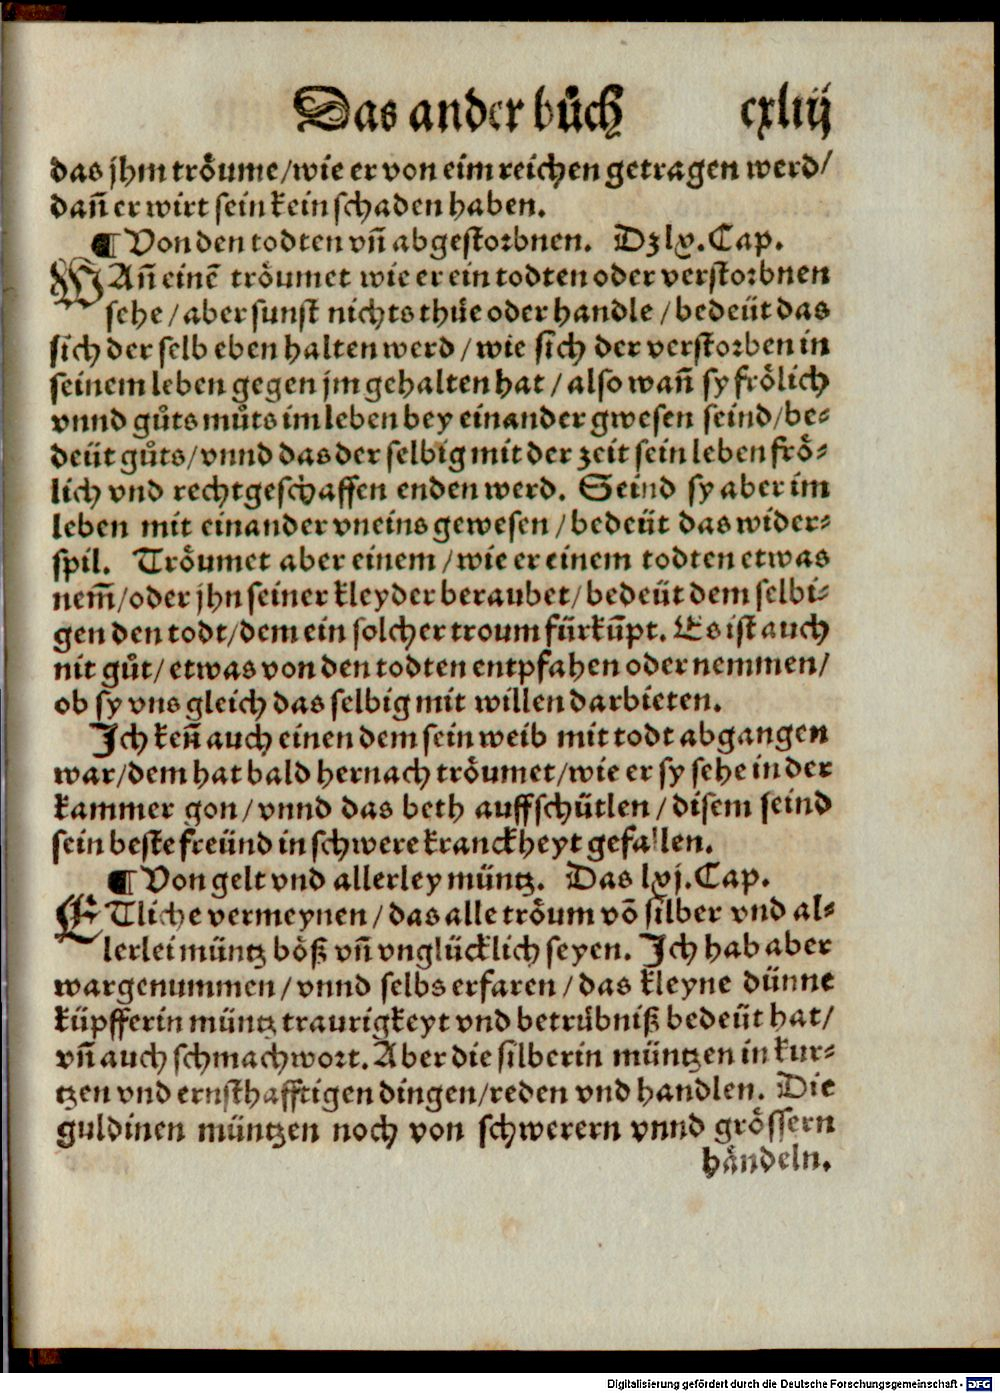 Das ander bůch cxliij
das jhm trôume/wie er von eim reichen getragen werd/
dañ er wirt sein kein schaden haben.
¶ Von den todten vñ abgestorbnen. Dz lv. Cap.
WAñ einẽ trôumet wie er ein todten oder verstorbnen
sehe/aber sunst nichts thüe oder handle/bedeüt das
sich der selb eben halten werd/wie sich der verstorben in
seinem leben gegen jm gehalten hat/also wañ sy frôlich
vnnd gůts můts im leben bey einander gwesen seind/be-
deüt gůts/vnnd das der selbig mit der zeit sein leben frô-
lich vnd rechtgeschaffen enden werd. Seind sy aber im
leben mit einander vneins gewesen/bedeüt das wider-
spil. Trôumet aber einem/wie er einem todten etwas
nem̃/oder jhn seiner kleyder beraubet/bedeüt dem selbi-
gen den todt/dem ein solcher troum fürkũpt. Es ist auch
nit gůt/etwas von den todten entpfahen oder nemmen/
ob sy vns gleich das selbig mit willen darbieten.
Jch keñ auch einen dem sein weib mit todt abgangen
war/dem hat bald hernach trôumet/wie er sy sehe in der
kammer gon/vnnd das beth auffschütlen/disem seind
sein beste freünd in schwere kranckheyt gefallen.
¶ Von gelt vnd allerley müntz. Das lvj. Cap.
ETliche vermeynen/das alle trôum võ silber vnd al-
lerlei müntz bôß vñ vnglücklich seyen. Jch hab aber
wargenummen/vnnd selbs erfaren/das kleyne dünne
küpfferin müntz traurigkeyt vnd betrübniß bedeüt hat/
vñ auch schmachwort. Aber die silberin müntzen in kur-
tzen vnd ernsthafftigen dingen/reden vnd handlen. Die
guldinen müntzen noch von schwerern vnnd grôssern
hândeln.
Digitalisierung gefördert durch die Deutsche Forschungsgemeinschaft - DFG